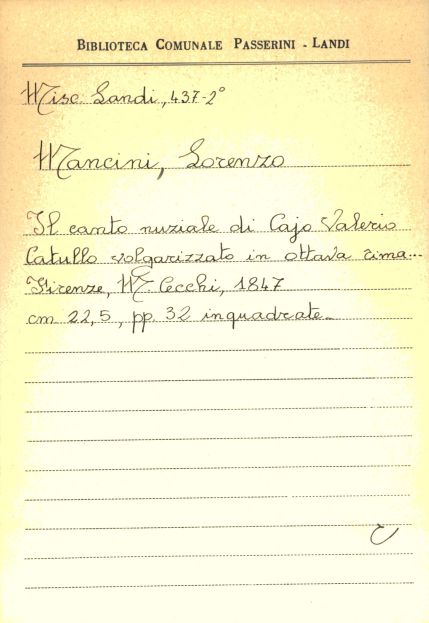 BIBLIOTECA COMUNALE PASSERINI - LANDI
Misc. Landi, 437-2°
Mancini, Lorenzo
Il canto nuziale di Cajo Valerio
Catullo volgarizzato in ottava rima...
Firenze, M. Cecchi, 1847
cm 22,5, pp. 32 inquadrate.